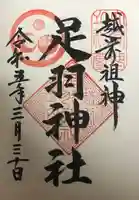 越前祖神
足羽神社
令和五年三月三十日